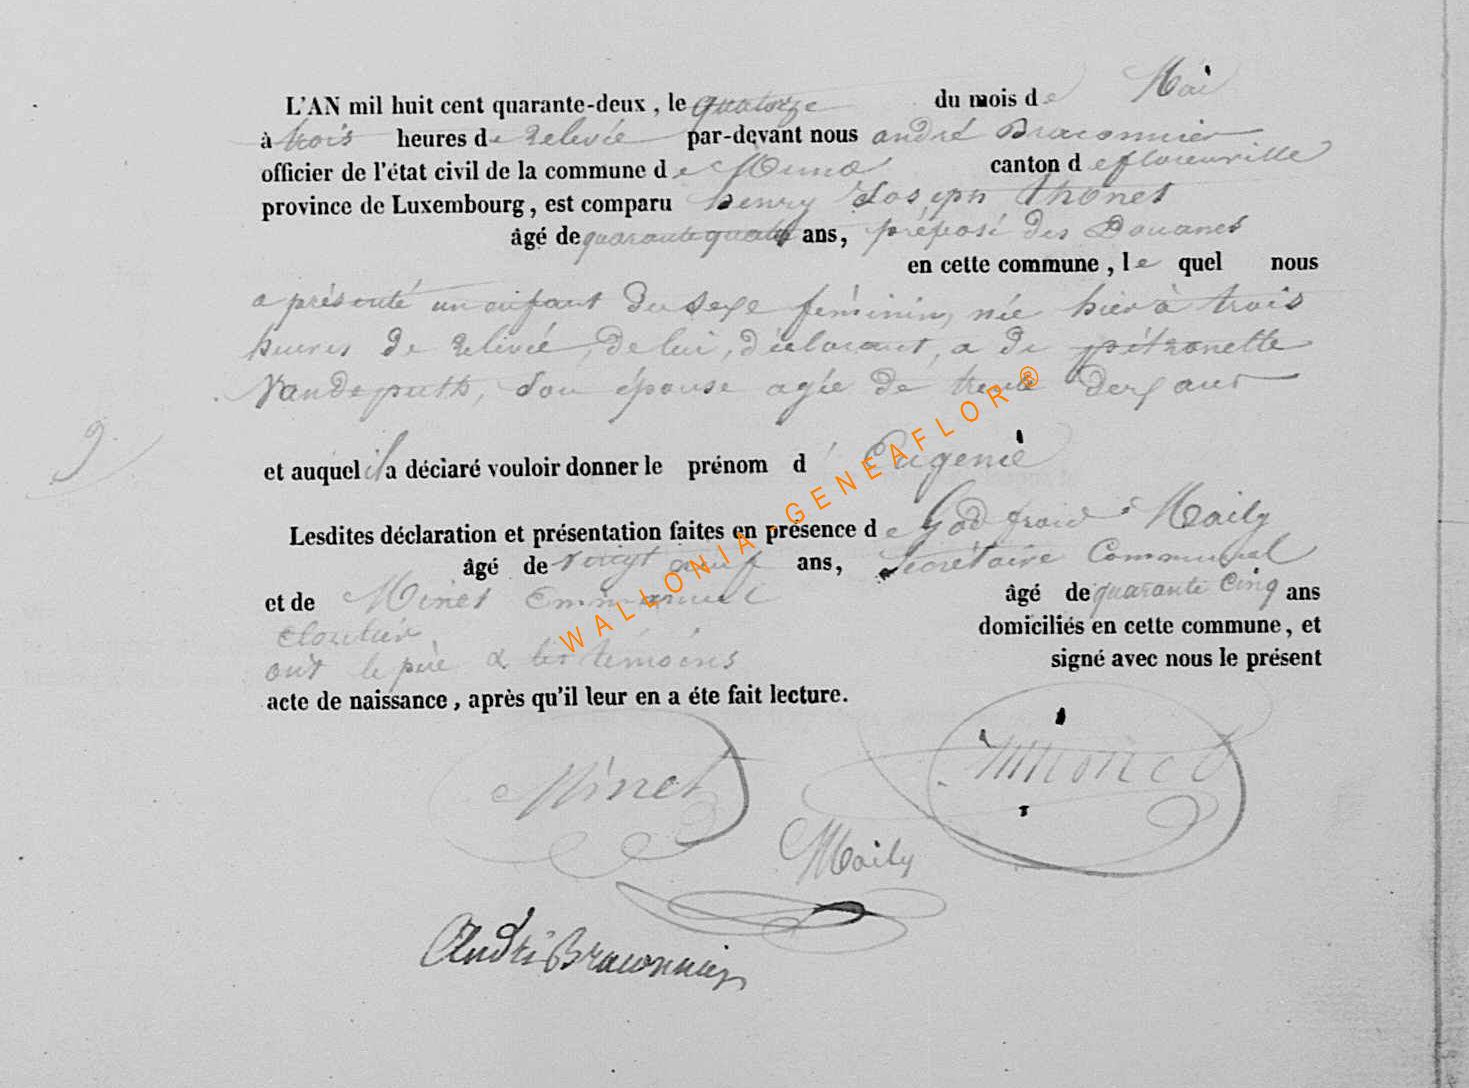 L'AN mil huit cent quarante-deux, le quatorze du mois de Mai
à trois heures de relevée par-devant nous andré Braconnier
officier de l'état civil de la commune de Muno canton de florenville
province de Luxembourg, est comparu henry Joseph thonet
âgé de quarante quatre ans, préposé des Douanes
en cette commune, le quel nous
a présenté un enfant du sexe féminin, née hier à trois
heures de relevée, de lui, déclarant, a de pétronelle
Vandeputh, son épouse agée de trente ans
9
et auquel il a déclaré vouloir donner le prénom d' Eugenie
Lesdites déclaration et présentation faites en présence de Godfroid Maily
âgé de vingt neuf ans, secrétaire Communal
et de Minet Emmanuel âgé de quarante Cinq ans
cloutier domiciliés en cette commune, et
ont le père & les témoins signé avec nous le présent
acte de naissance, après qu'il leur en a éte fait lecture.
Minet
Maily
André Braconnier
WALLONIA-GENEAFLOR®